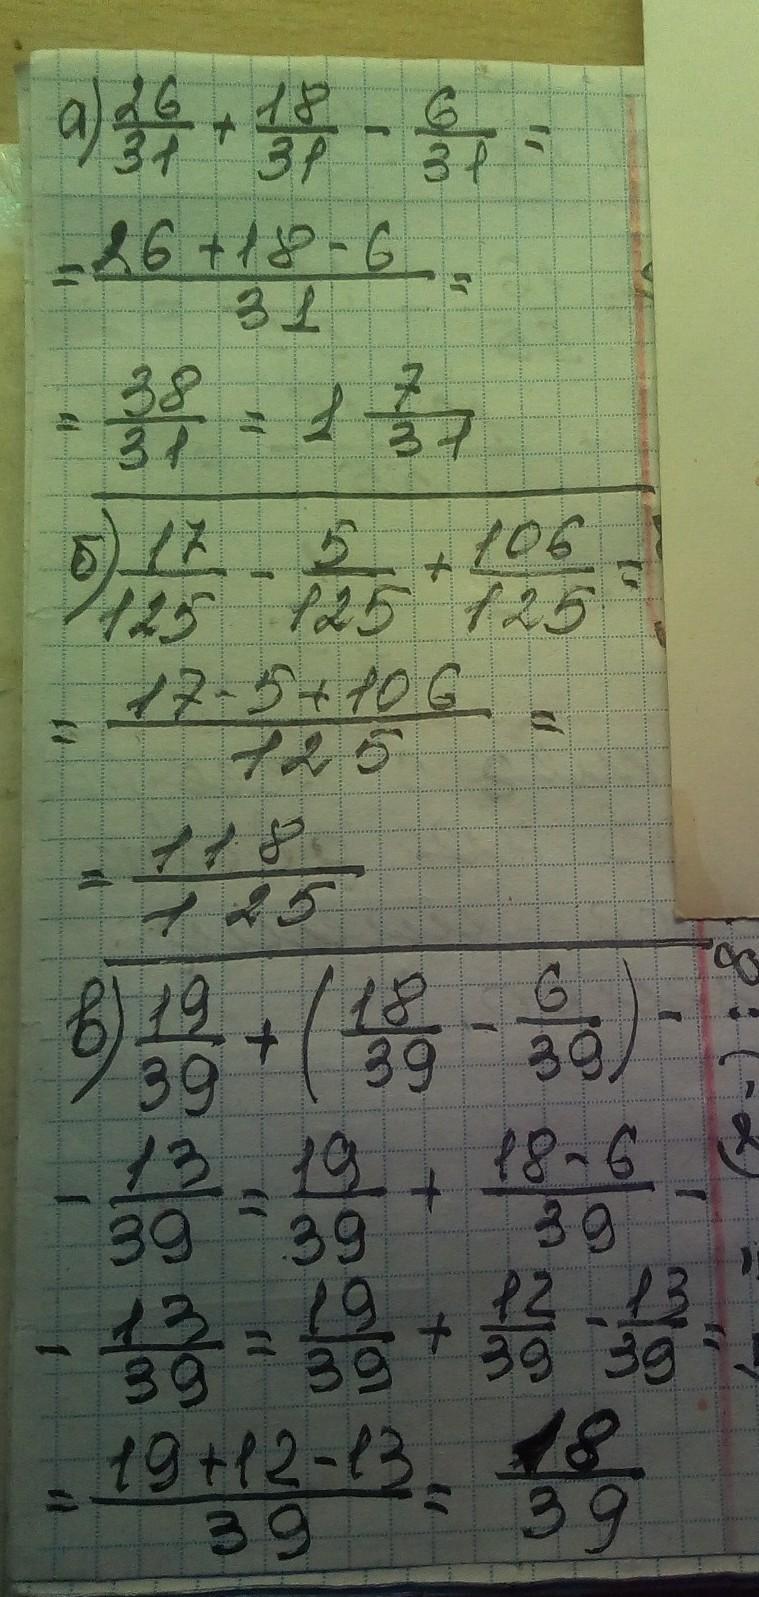 а) 26/31 + 18/31 - 6/31 =
= (26 + 18 - 6)/31 =
= 38/31 = 1 7/31
б) 17/125 - 5/125 + 106/125 =
= (17 - 5 + 106)/125 =
= 118/125
в) 19/39 + (18/39 - 6/39) -
- 13/39 = 19/39 + (18 - 6)/39 -
- 13/39 = 19/39 + 12/39 - 13/39 =
= (19 + 12 - 13)/39 = 18/39